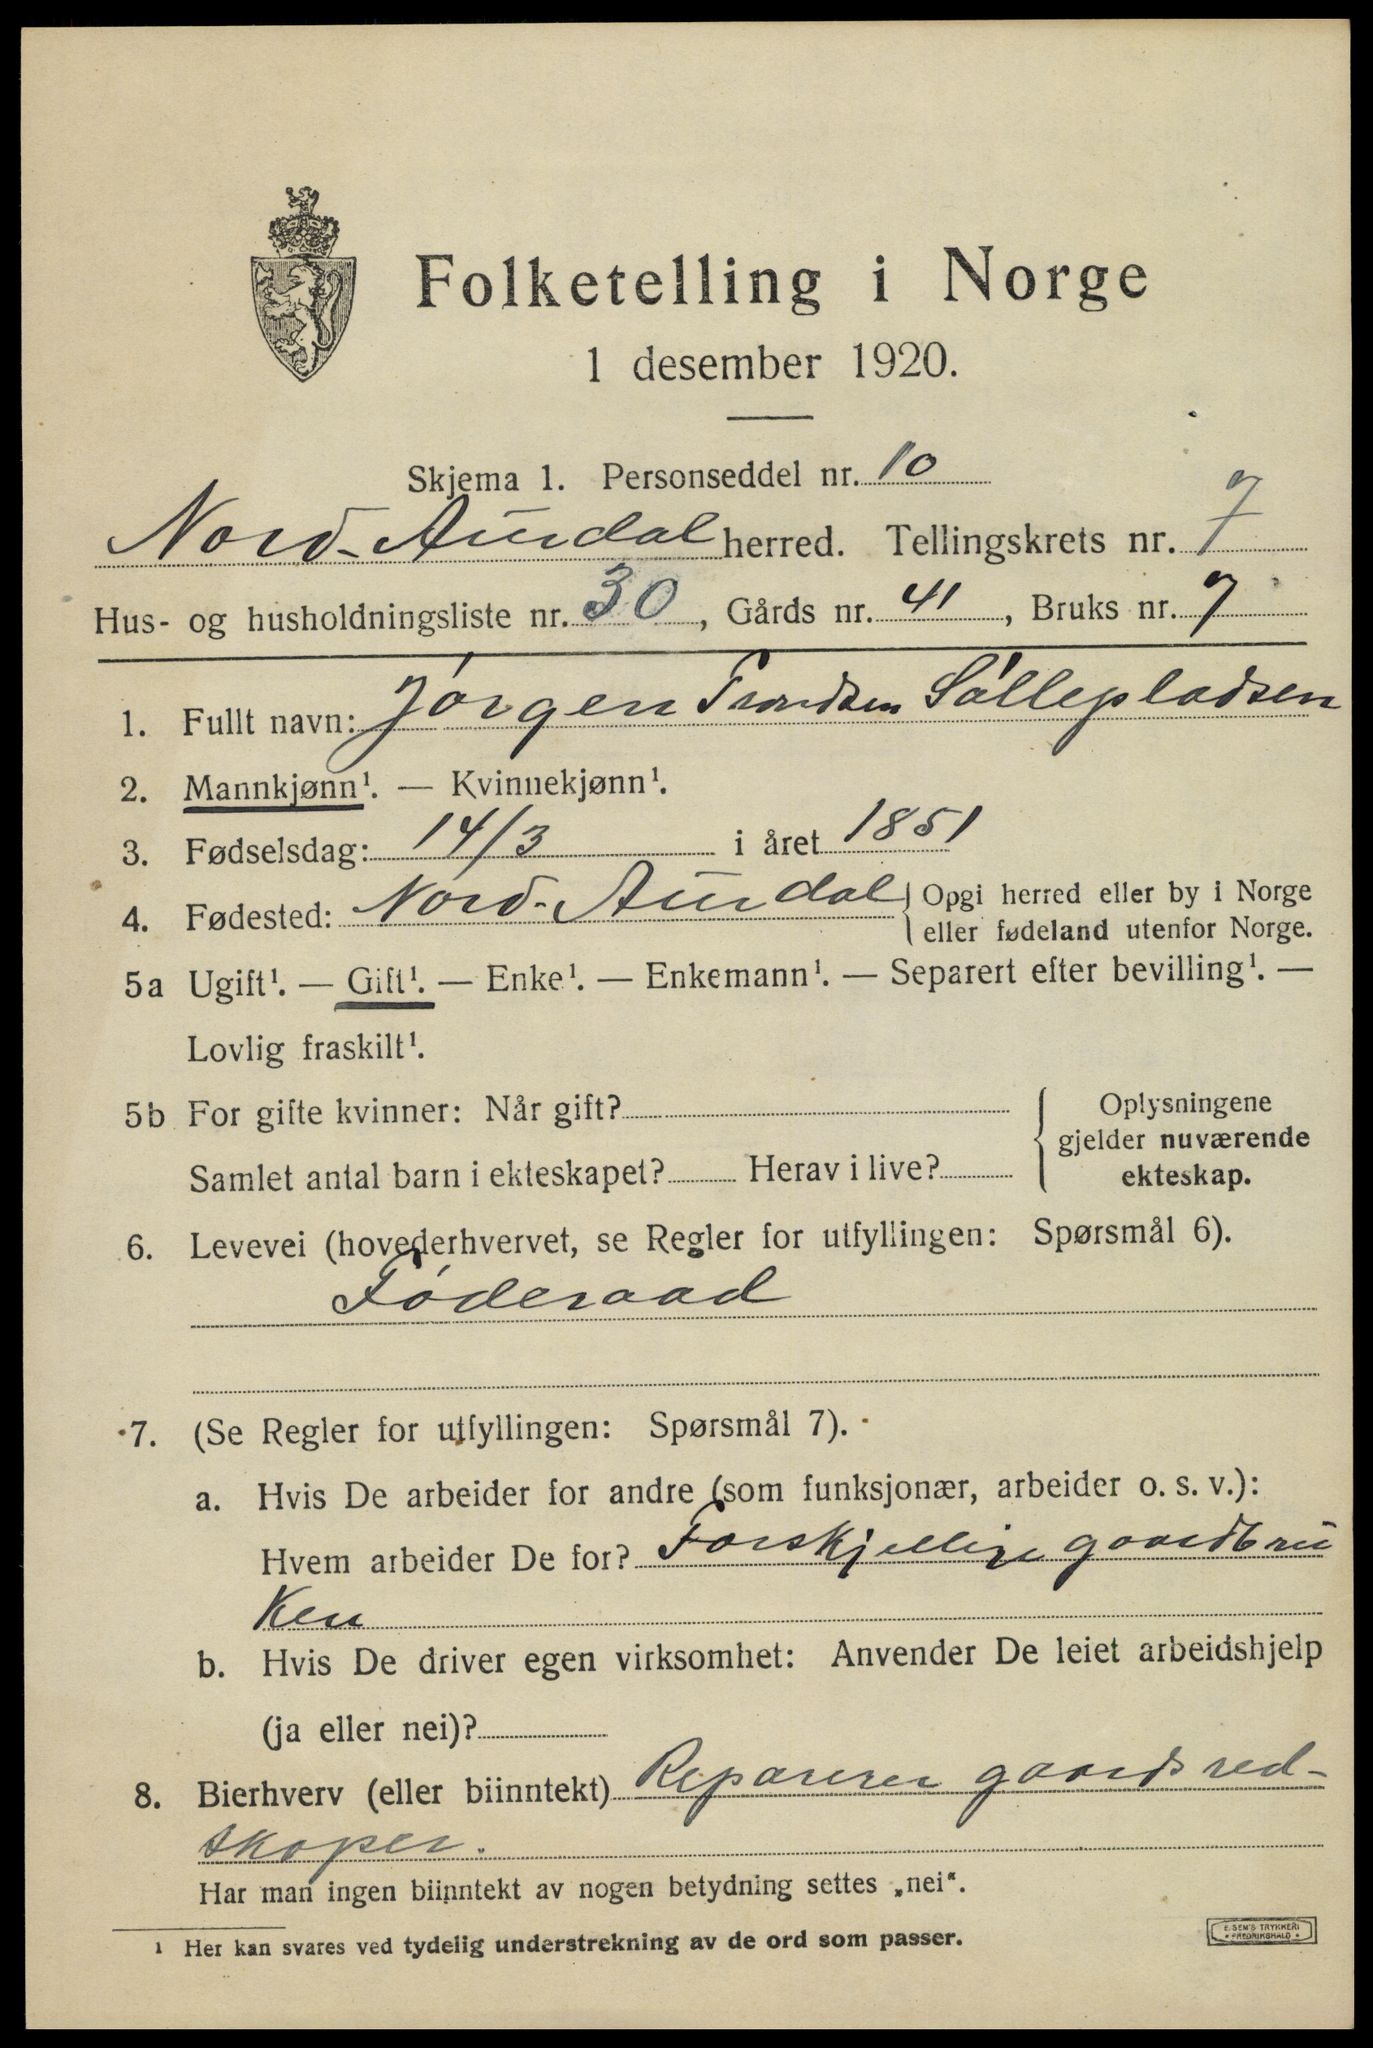 Folketelling i Norge
1 desember 1920.
Skjema 1. Personseddel nr. 10
Nord-Aurdal herred. Tellingskrets nr. 7
Hus- og husholdningsliste nr. 30, Gårds nr. 41, Bruks nr. 7
1. Fullt navn: Jørgen Trondsen Sällepladsen
2. Mannkjønn¹. — Kvinnekjønn¹.
3. Fødselsdag: 14/3 i året 1851
4. Fødested: Nord-Aurdal { Opgi herred eller by i Norge
eller fødeland utenfor Norge.
5a Ugift¹. — Gift¹. — Enke¹. — Enkemann¹. — Separert efter bevilling¹. —
Lovlig fraskilt¹.
5b For gifte kvinner: Når gift?
Samlet antal barn i ekteskapet? Herav i live?
Oplysningene
gjelder nuværende
ekteskap.
6. Levevei (hovederhvervet, se Regler for utfyllingen: Spørsmål 6).
Føderaad
7. (Se Regler for utfyllingen: Spørsmål 7).
a. Hvis De arbeider for andre (som funksjonær, arbeider o. s. v.):
Hvem arbeider De for? Forskjellige gaardbru
ken
b. Hvis De driver egen virksomhet: Anvender De leiet arbeidshjelp
(ja eller nei)?
8. Bierhverv (eller biinntekt) Reparerer gaards red-
skaper.
Har man ingen biinntekt av nogen betydning settes „nei".
¹ Her kan svares ved tydelig understrekning av de ord som passer.
E. SEM'S TRYKKERI
FREDRIKSHALD